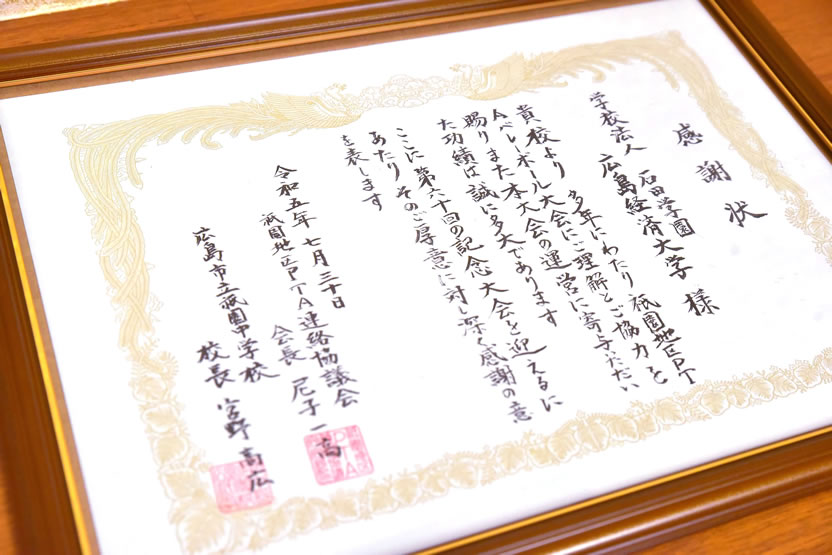 感謝状
学校法人 石田学園
広島経済大学 様
貴校より 多年にわたり 祇園地区PT
Aバレーボール大会にご理解とご協力を
賜りまた本大会の運営に寄与いただい
た功績は誠に多大であります
ここに第六十回の記念大会を迎えるに
あたりそのご厚意に対し深く感謝の意
を表します
令和五年 七月三十日
祇園地区PTA連絡協議会
会長 尼子 一高
広島市立祇園中学校
校長 宮野 高広